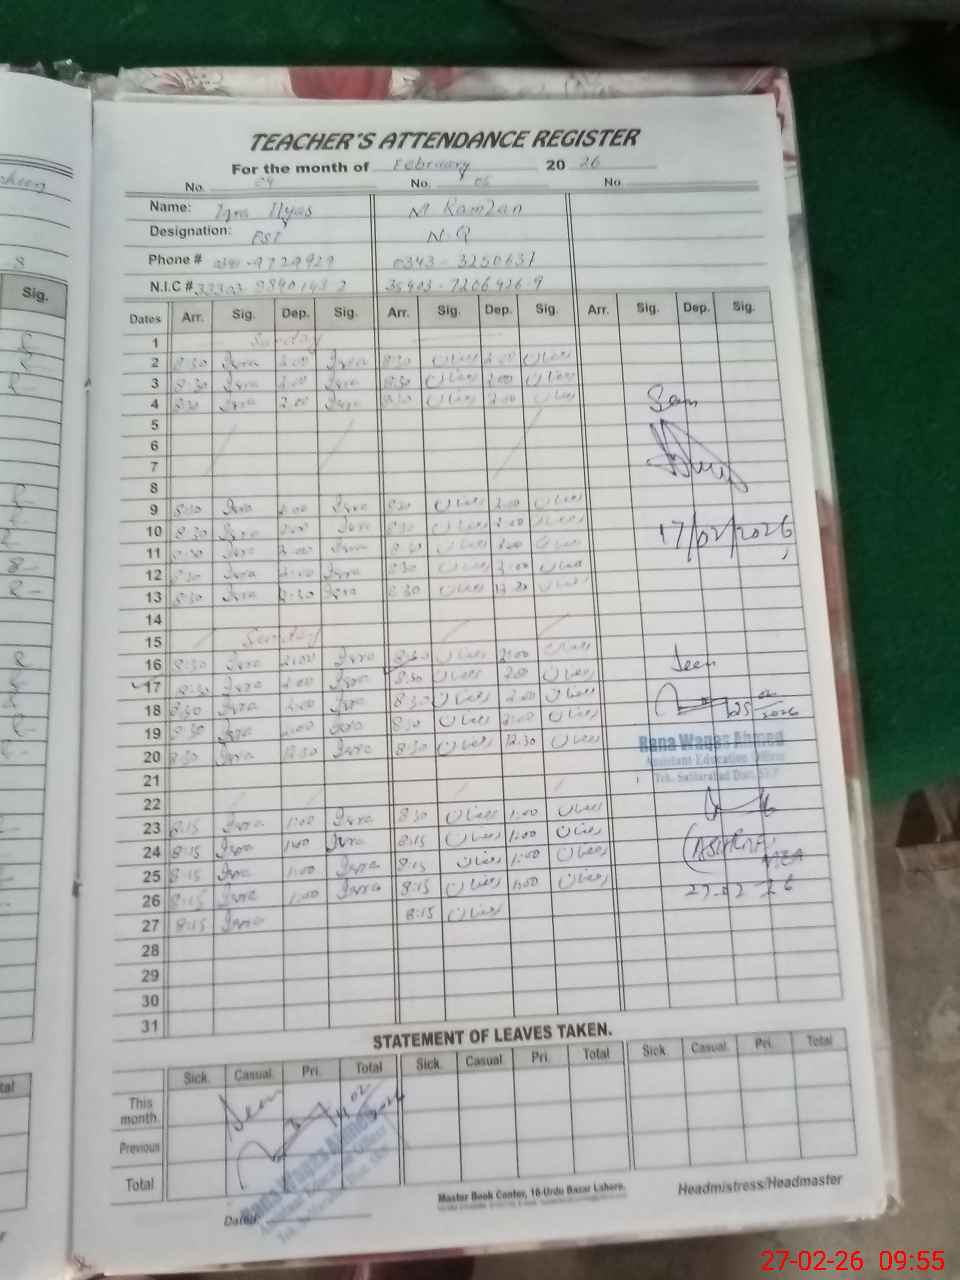 TEACHER'S ATTENDANCE REGISTER
For the month of February 20 26
No. 04 No. 05 No
Name: Iqra Ilyas M Ramzan
Designation: PST N.Q
Phone # 9729929 0343-3250631
N.I.C # 35403-7206426-9
Sig.
Dates Arr. Sig. Dep. Sig. Arr. Sig. Dep. Sig. Arr. Sig. Dep. Sig.
1 Sunday
2 8:30 Iqra 2:00 Iqra 8:30 رمضان 2:00 رمضان
3 8:30 Iqra 2:00 Iqra 8:30 رمضان 2:00 رمضان
4 8:30 Iqra 2:00 Iqra 8:30 رمضان 2:00 رمضان Seen
5
6
7
8
9 8:30 Iqra 2:00 Iqra 8:30 رمضان 2:00 رمضان
10 8:30 Iqra 2:00 Iqra 8:30 رمضان 2:00 رمضان 17/02/2026
11 8:30 Iqra 2:00 Iqra 8:30 رمضان 2:00 رمضان
12 8:30 Iqra 2:00 Iqra 8:30 رمضان 2:00 رمضان
13 8:30 Iqra 12:30 Iqra 8:30 رمضان 12:30 رمضان
14
15 Sunday
16 8:30 Iqra 2:00 Iqra 8:30 رمضان 2:00 رمضان Seen
17 8:30 Iqra 2:00 Iqra 8:30 رمضان 2:00 رمضان
18 8:30 Iqra 2:00 Iqra 8:30 رمضان 2:00 رمضان 25/02/2026
19 8:30 Iqra 2:00 Iqra 8:30 رمضان 2:00 رمضان
20 8:30 Iqra 12:30 Iqra 8:30 رمضان 12:30 رمضان
Rana Waqas Ahmed
Assistant Education Officer
21
22
23 8:15 Iqra 1:00 Iqra 8:30 رمضان 1:00 رمضان
24 8:15 Iqra 1:00 Iqra 8:15 رمضان 1:00 رمضان
25 8:15 Iqra 1:00 Iqra 8:15 رمضان 1:00 رمضان MEA
26 8:15 Iqra 1:00 Iqra 8:15 رمضان 1:00 رمضان 27-02-26
27 8:15 Iqra 8:15 رمضان
28
29
30
31
STATEMENT OF LEAVES TAKEN.
Sick. Casual. Pri. Total Sick. Casual Pri. Total Sick. Casual. Pri. Total
This month. Seen
Previous
Total
Rana Waqas Ahmed
Assistant Education Officer
Dated:
Master Book Center, 16-Urdu Bazar Lahore.
Headmistress/Headmaster
27-02-26 09:55